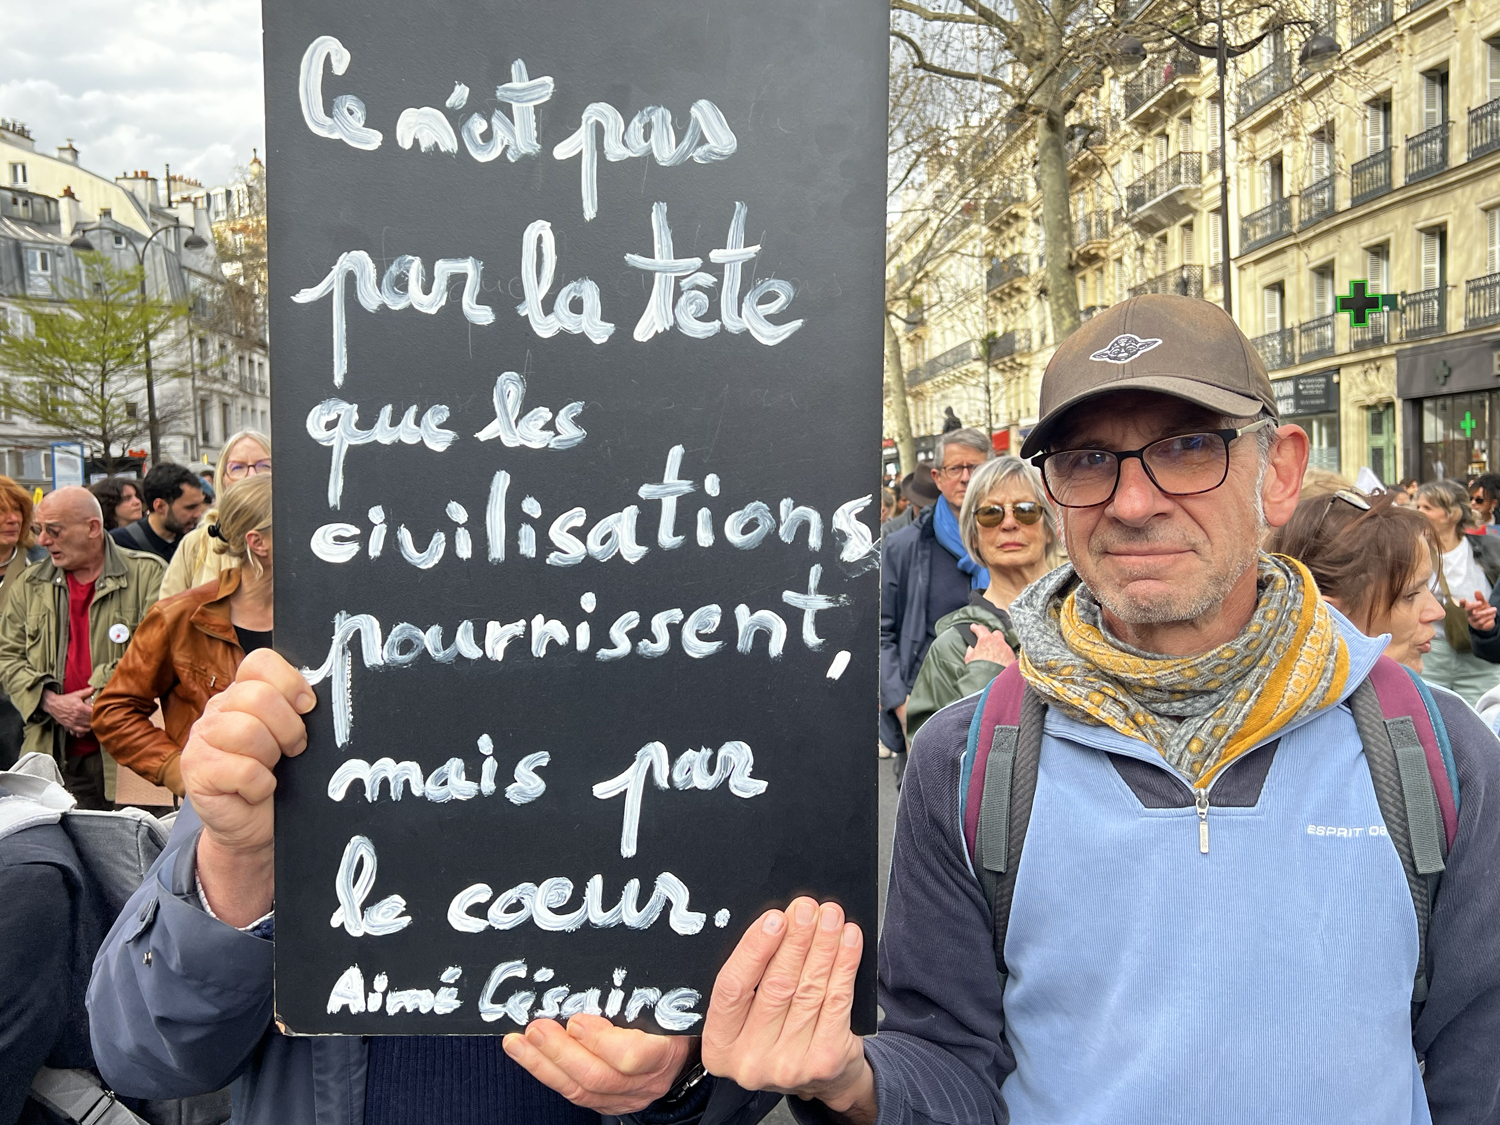 Ce n'est pas
par la tête
que les
civilisations
pourrissent,
mais par
le cœur.
Aimé Césaire
ESPRIT DE